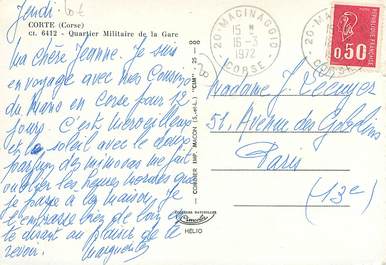 Jeudi.
CORTE (Corse)
ct. 6412 - Quartier Militaire de la Gare
Ma chère Jeanne. Je suis
en voyage avec mes Cousins
du Mans en Corse pour 12
jours. C'est merveilleux
et le soleil avec le doux
parfum des mimosas me fait
oublier les heures
je passe à la maison. Je
t'embrasse bien de loin et
te disant au plaisir de te
revoir. Marguerite
COMBIER IMP. MACON (S.-et-L.) "CIM"
COULEURS NATURELLES
Combier
HELIO
20-MACINAGGIO
15-5
1972
CORSE
20-MACINAGGIO
CORSE
0,50
Madame J.
51, Avenue des Gobelins
Paris
(13e)